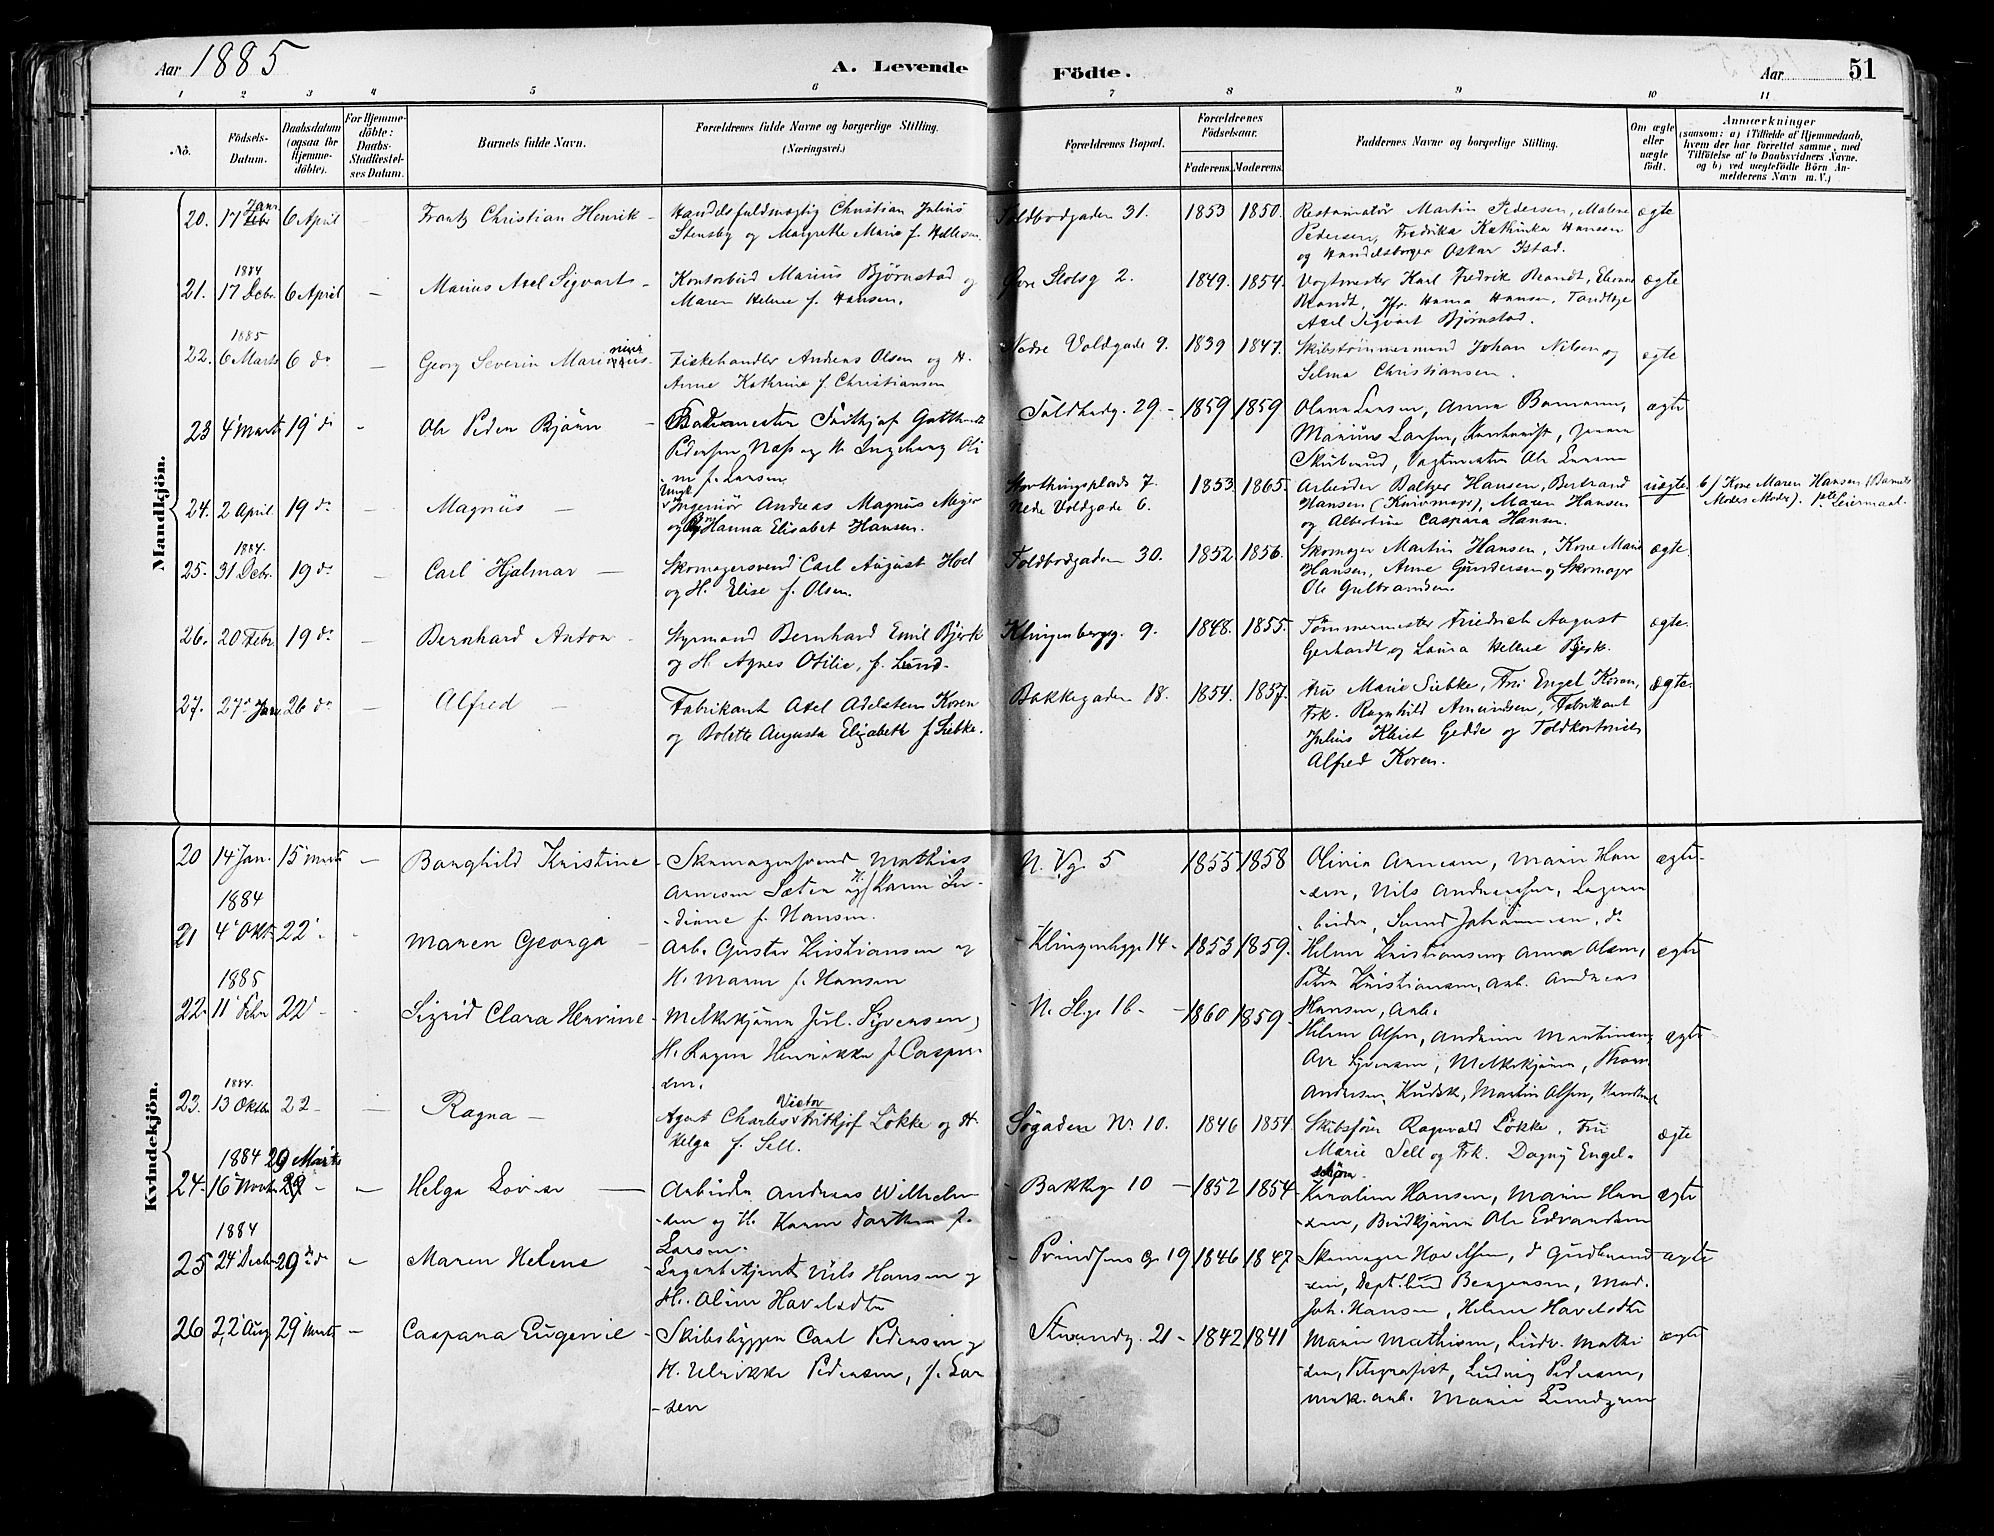 Aar 1885
A. Levende
Födte.
Aar
51
1 2 3 4 5 6 7 8 9 10 11
No.
Födsels-
Datum.
Daabsdatum
(ogsaa for
Hjemme-
döbte).
For Hjemme-
döbte:
Daabs-
Stadfæstel-
ses Datum.
Barnets fulde Navn.
Forældrenes fulde Navne og borgerlige Stilling.
(Næringsvei.)
Forældrenes Bopæl.
Forældrenes
Födselsaar.
Faderens. Moderens.
Faddernes Navne og borgerlige Stilling.
Om ægte
eller
uægte
födt.
Anmærkninger
(saasom: a) i Tilfælde af Hjemmedaab,
hvem der har forrettet samme, med
Tilföielse af to Daabsvidners Navne.
og b) ved uægtefödte Börn An-
melderens Navn m. V.)
Mandkjön.
20. 17 Jan. 6 April
Frantz Christian Henrik
Handelsfuldmægtig Christian Julius
Stensby og Margrethe Marie f.
Toldbodgaden 31. 1853 1850.
Restauratør Martin Pedersen, Malene
Pedersen, Fredrika Kathinka Hansen
og Handelsborger Oskar Istad.
ægte
1884
21. 17 Debr. 6 April
Marius Axel Sigvarts
Kontorbud Marius Bjørnstad og
Maren Helene f. Hansen.
Øvre Slotsg 2. 1849. 1854.
Vogtmester Karl Fredrik Brandt,
Brandt, Hanna Hansen, Tandlæge
Axel Sigvart Bjørnstad.
ægte
1885
22. 6 Marts 6 do
Georg Severin
Fiskehandler Andreas Olsen og H.
Anne Kathrine f. Christiansen
Nedre Voldgade 9. 1839 1847.
Skibstømmermand Johan Nilsen og
Selma Christiansen.
ægte
23 4 Marts 19 d
Ole Peder Bjørn
Pedersen Næss og H. Ingeborg Oli
f. Larsen
Toldbodg. 29. 1859 1859
Olava Larsen, Anna
Marius Larsen,
ægte
24. 2 April 19 do
Magnus
Ingeniør Andreas Magnus Meyer
og Hanna Elisabet Hansen.
Storthingsplads 7.
Nedre Voldgade 6.
1853. 1865.
Arbeider Baltzer Hansen, Bertrand
Hansen, Maren Hansen
og Albertine Caspara Hansen.
uægte
6/ Kone Maren Hansen (Barnets
Moders Moder). 1ste Leiermaal.
1884.
25. 31 Debr. 19 do
Carl Hjalmar
Skomagersvend Carl August Hoel
og H. Elise f. Olsen.
Toldbodgaden 30. 1852 1856.
Skomager Martin Hansen, Kone Marie
Hansen, Anne Gundersen og Skomager
Ole Gulbrandsen.
ægte.
26. 20 Febr. 19 do
Bernhard Anton
Styrmand Bernhard Emil Bjerk
og H. Agnes Otilie, f. Lund.
Klingenbergg. 9. 1848. 1855.
Tømmermester Friedrich August
Gerhardt og Laura Helene Bjerk.
ægte.
27. 27 Jan. 26 do
Alfred
Fabrikant Axel Adelsten Koren
og Bolette Augusta Elizabeth f. Siebke.
Bakkegaden 18. 1854. 1857.
Fru Marie Siebke, Fru Engel Koren,
Frk. Ragnhild Amundsen, Fabrikant
Julius Gedde og
Alfred Koren.
ægte.
Kvindekjön.
20 14 Jan. 15 Marts
Borghild Kristine
Skomagersvend Mathias
Arnesen Sæten og H. Karen
f. Hansen.
N. Vg. 5 1855 1858
Olivia Arnesen, Marie Han
sen, Nils Andreassen,
ægte
1884
21 4 Okt. 22
Maren Georga
Arb. Gustav Kristiansen og
H. Maren f. Hansen
Klingenbgg. 14 1853 1859.
Helene Kristiansen, Anna Olsen,
Petra Kristiansen, Arb. Andreas
Hansen, Arb.
ægte
1885
22. 11 Febr 22
Sigrid Clara Henrine
Melkekjører Jul. Syversen,
H. Ragna Henrikke f. Casper-
sen.
N. Slg. 16 1860 1859
Helene Olsen, Andrine Martinsen,
Syversen, Melkekjører, Thom
Andersen, Kudsk, Martin Olsen,
ægte
1884.
23. 13 Oktbr 22
Ragna
Agent Charles Victor Fritkjof Løkke og H.
Helga f. Sell.
Søgaden No 10. 1846 1854.
Skibsfører Ragnvald Løkke, Fru
Marie Sell og Frk. Dagny Engel-
schøn
ægte
1884 29 Marts
24. 16 Novbr
Helga Lovise
Arbeider Andreas Wilhelm
sen og H. Karen Dorthea f.
Larsen.
Bakkg. 10 1852 1854
Karoline Hansen, Marie Han
sen, Ole Edvardsen
ægte
1884
25 24 Decbr 29 do
Maren Helene
Nils Hansen og
H. Oline Havelsdtr
Prindsens G. 19 1846 1847
Skomager Gudbrand
sen, Bud Bengtsen, Mad.
Joh. Hansen, Helene Havelsdtr
ægte
26 22 Aug 29 Marts
Caspara Eugenie
Skibsbygger Carl Pedersen og
H. Ulrikke Pedersen, f. Lar
sen
Strandg. 21 1842 1841
Marie Mathisen, Ludv. Mathi
sen, Telegrafist, Ludvig Pedersen,
Arb. Marie Lundgren
ægte